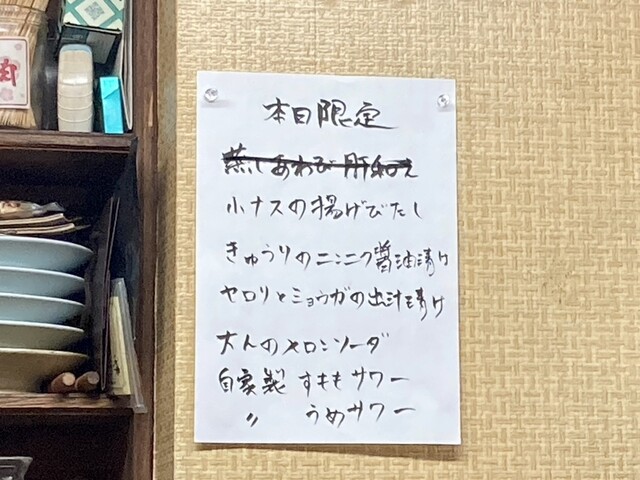 本日限定
蒸しあわび肝和え
小ナスの揚げびたし
きゅうりのニンニク醤油漬け
セロリとミョウガの出汁漬け
大人のメロンソーダ
自家製 すももサワー
〃 うめサワー